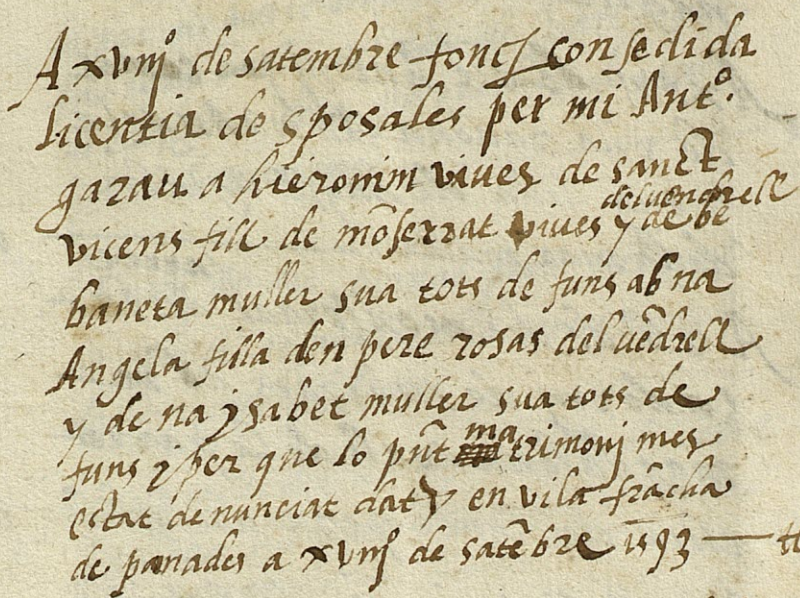 A xviiijº de satembre fonch consedida
licentia de sposales per mi Antº.
garau a hieronim vives de sanct
vicens fill de mōserrat vives y de be
delvendrell
baneta muller sua tots defuns ab na
Angela filla den pere rosas del vēdrell
y de na ysabet muller sua tots de
funs y per que lo pñt matrimonj mes
estat denunciat dat y en vila frācha
de panades a xviiijº de satēbre 1593